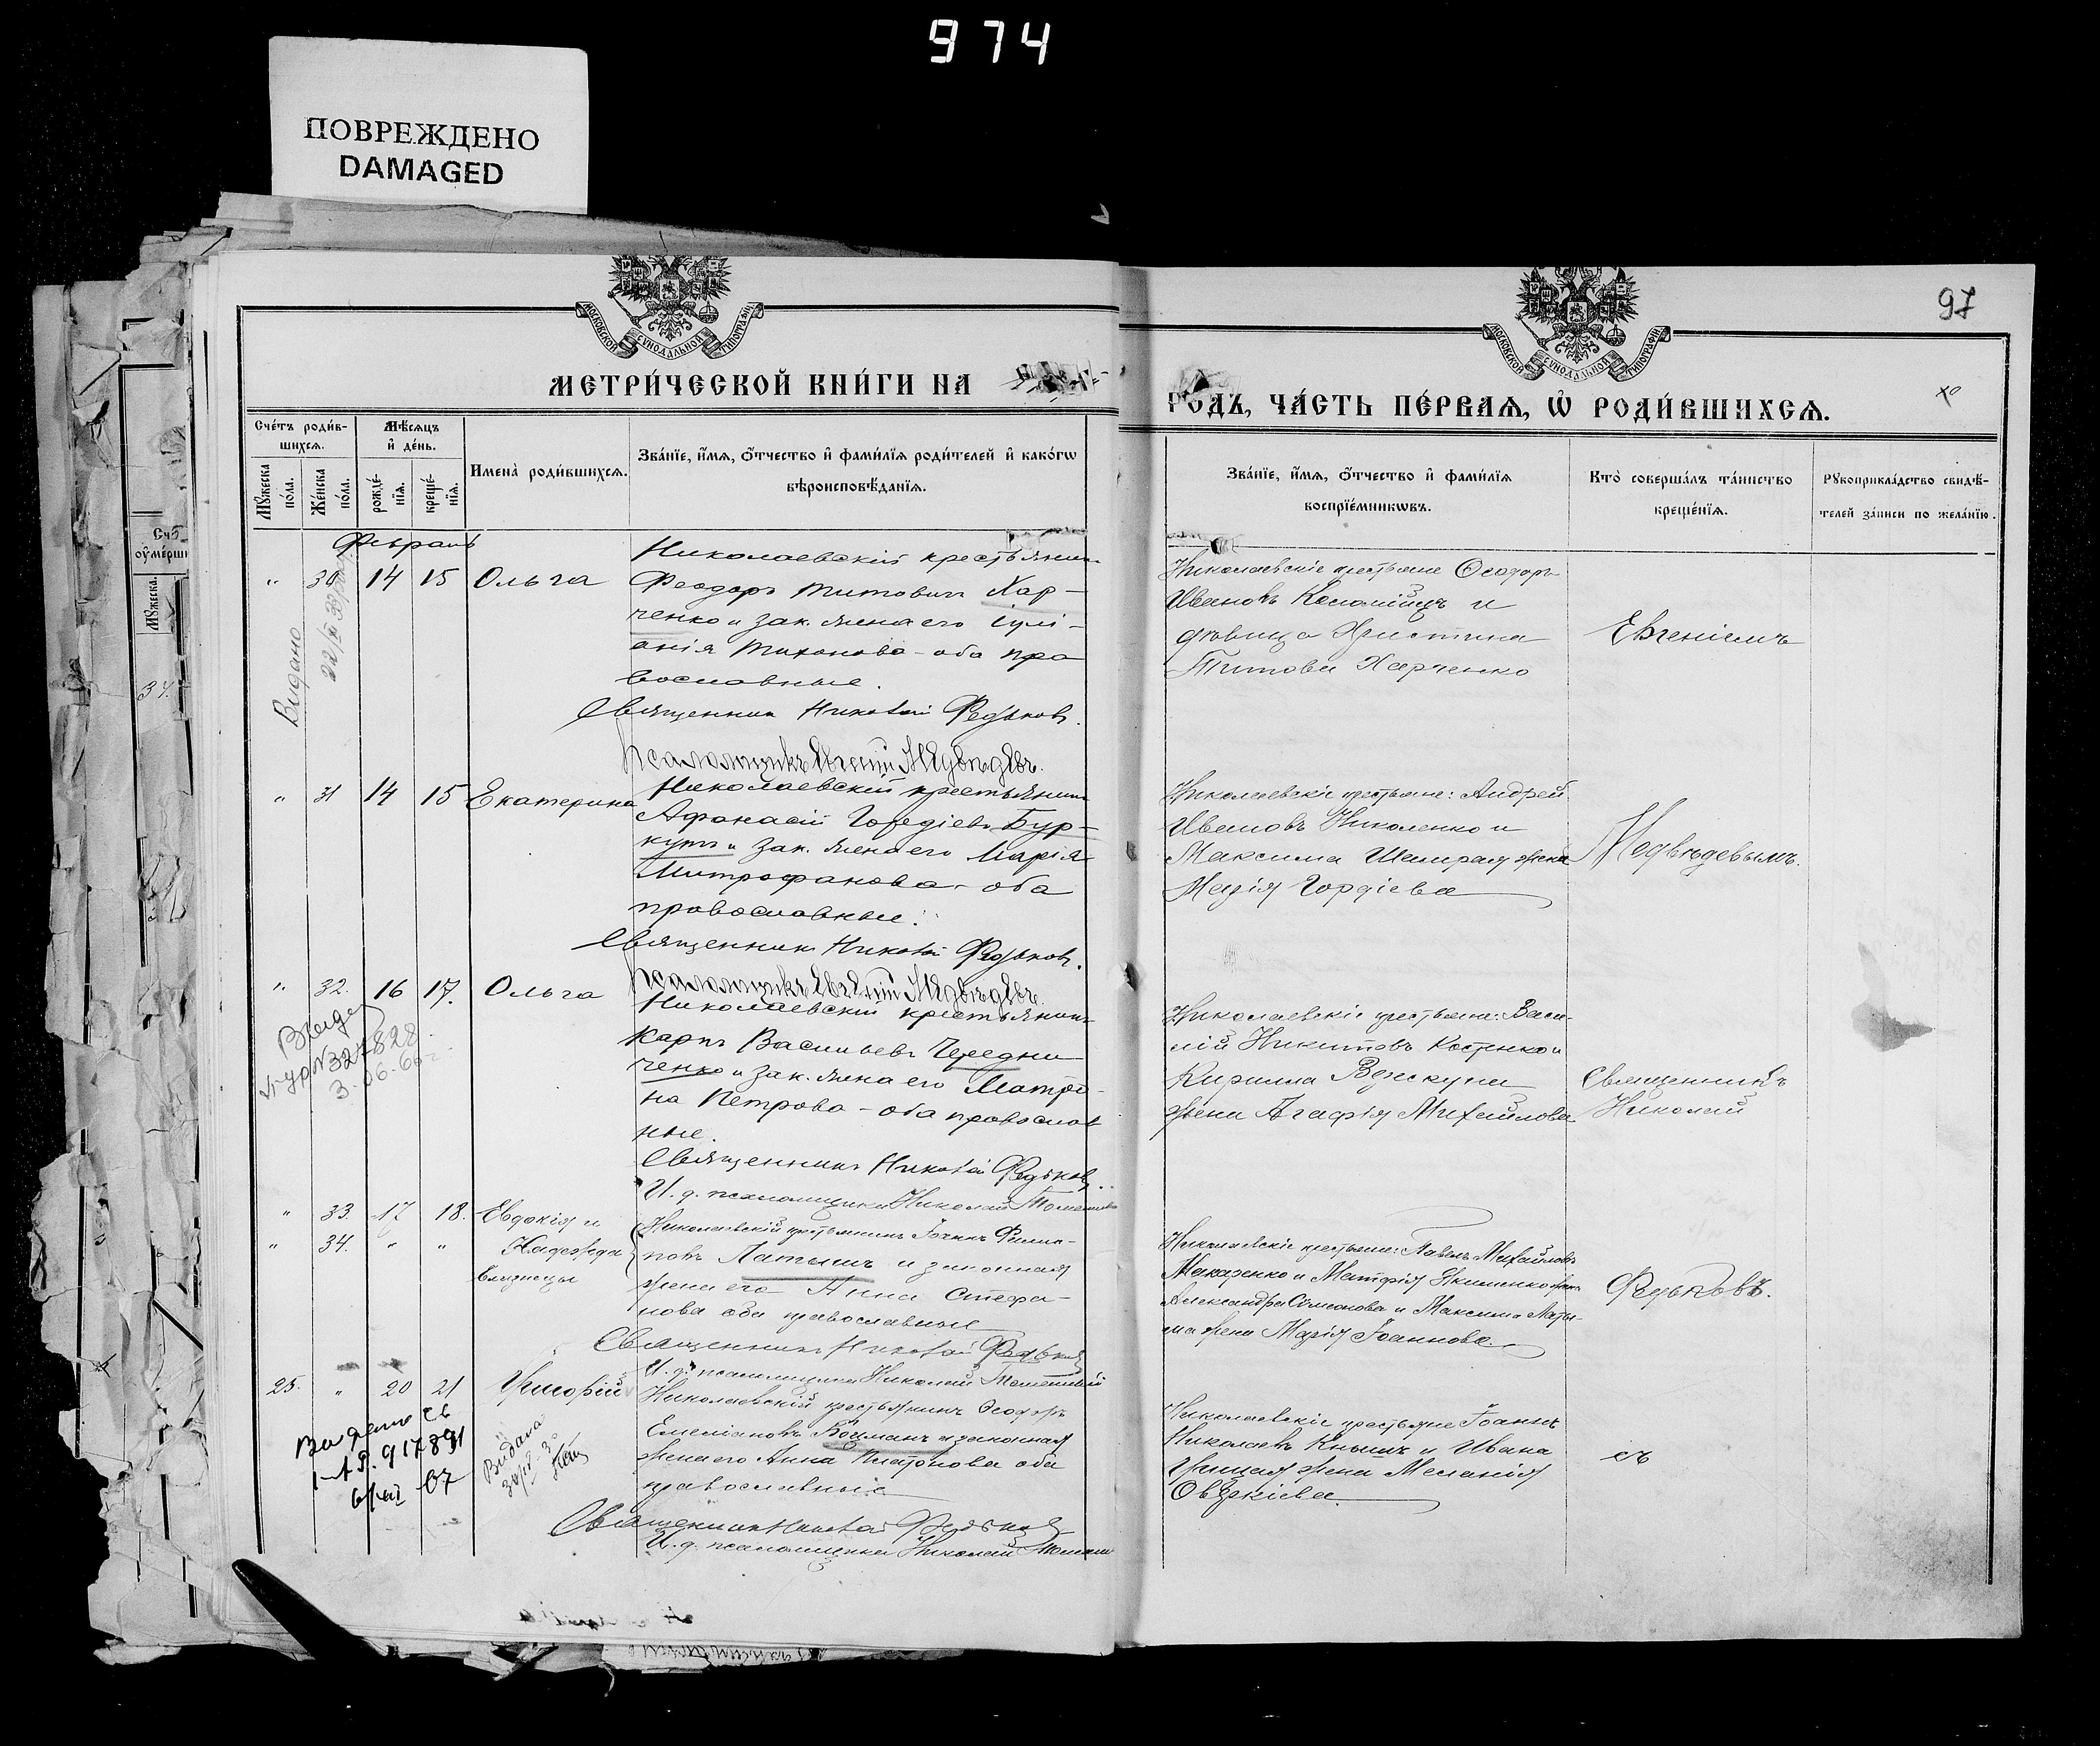 974
ПОВРЕЖДЕНО
DAMAGED
97
МОСКОВСКОЙ СѴНОДАЛЬНОЙ ТИПОГРАФІИ
МОСКОВСКОЙ СѴНОДАЛЬНОЙ ТИПОГРАФІИ
МЕТРИ́ЧЕСКОЙ КНИ́ГИ НА
РОДЪ, ЧА́СТЬ ПЕ́РВАѦ, Ѽ РОДИ́ВШИХСѦ.
Сче́тъ роди́в-
шихсѧ.
Мѣ́сѧцъ
и҆ де́нь.
Мꙋ́жеска
по́ла.
Же́нска
по́ла.
рожде́-
нїѧ.
креще́-
нїѧ.
Имена̀ роди́вшихсѧ.
Зва́нїе, и҆́мѧ, ѻ҆́тчество и҆ фами́лїѧ роди́телей и҆ како́гѡ
вѣроисповѣ́данїѧ.
Зва́нїе, и҆́мѧ, ѻ҆́тчество и҆ фами́лїѧ
воспрїе́мникѡвъ.
Кто̀ соверша́лъ та́инство
креще́нїѧ.
Рꙋкоприкла́дство свидѣ́-
телей за́писи по жела́нїю.
Сче́
оу҆ме́рши
Мꙋ́жеска.
34.
Февраль
" 30 14 15 Ольга
Николаевскій крестьянинъ
Феодоръ Титовичъ Хар-
ченко и зак. жена его Іулі-
анія Тихонова - оба пра
вославные.
Священник Николай Федьковъ.
Псаломщикъ Евгеній Медвѣдевъ.
Николаевскіе крестьяне Ѳеодоръ
Ивановъ Коломіецъ и
дѣвица Христина
Титова Харченко
Евгеніемъ
Видано
" 31 14 15 Екатерина
Николаевскій крестьянинъ
Афанасій Гордіевъ Бур-
кутъ и зак. жена его Марія
Митрофанова - оба
православные.
Священник Николай Федьковъ.
Псаломщикъ Евгеній Медвѣдевъ.
Николаевскіе крестьяне: Андрей
Ивановъ Николенко и
Максима жена
Марія Гордіева
Медвѣдевымъ.
" 32. 16 17. Ольга
Николаевскій крестьянинъ
Карпъ Васильевъ Чередни-
ченко и зак. жена его Матро-
на Петрова - оба православ
ные.
Священникъ Николай Федьковъ.
И. д. псаломщика Николай
Николаевскіе крестьяне: Васи-
лій Никитовъ Костенко и
Кирилла
жена Агафія Михайлова
Священникъ
Николай
№327828
3-06-60
" 33. 17 18. Евдокія и
" 34. " " Надежда
близнецы
Николаевскій крестьянинъ Іоаннъ Филип-
повъ Латышъ и законная
жена его Анна Стефа-
нова оба православные
Священникъ Николай Федьковъ
И. д. псаломщика Николай
Николаевскіе крестьяне: Павелъ Михайловъ
Макаренко и Якименко жена
Александра Симеонова и Максима Латы-
ша жена Марія Іоаннова.
Федьковъ.
25. " 20 21 Григорій
Николаевскій крестьянинъ Ѳеодоръ
Емеліановъ Боцманъ и законная
жена его Анна Платонова оба
православные
Священник Николай Федьков
И. д. псаломщика Николай
Николаевскіе крестьяне Іоаннъ
Николаевъ Кнышъ и Ивана
жена Меланія
съ
Видана
917891
07